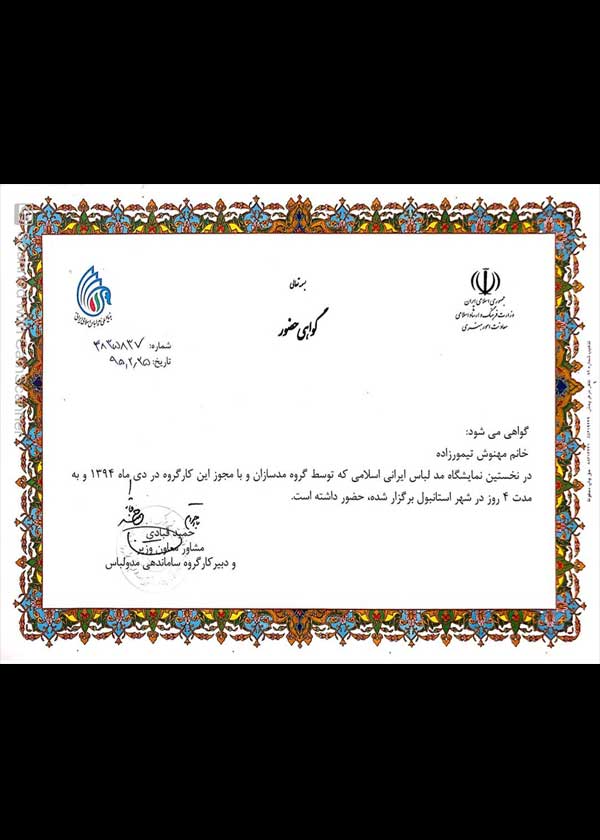 بسمه تعالی
گواهی حضور
جمهوری اسلامی ایران
وزارت فرهنگ و ارشاد اسلامی
معاونت امور هنری
شماره: ۴۸۳۵۸۳۷
تاریخ: ۹۵,۲,۲۵
گواهی می شود:
خانم مهنوش تیمورزاده
در نخستین نمایشگاه مد لباس ایرانی اسلامی که توسط گروه مدسازان و با مجوز این کارگروه در دی ماه ۱۳۹۴ و به
مدت ۴ روز در شهر استانبول برگزار شده، حضور داشته است.
حمید قبادی
مشاور معاون وزیر
و دبیر کارگروه ساماندهی مدولباس